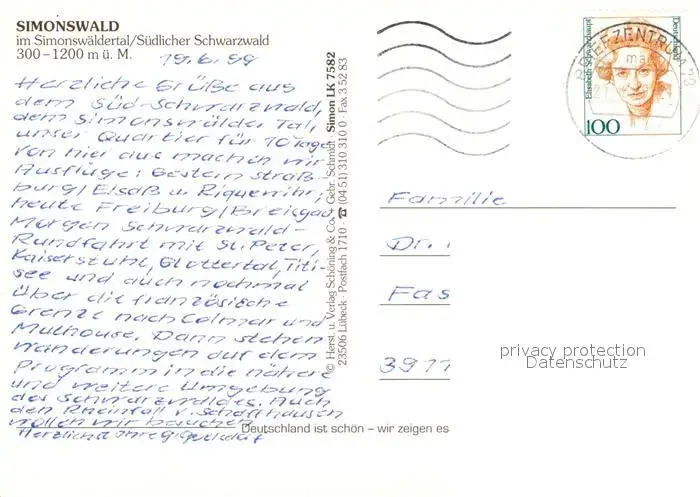 SIMONSWALD
im Simonswäldertal/Südlicher Schwarzwald
300–1200 m ü. M.
19.6.99
Herzliche Grüße aus
dem Süd-Schwarzwald,
dem Simonswälder Tal,
unser Quartier für 10 Tage
Von hier aus machen wir
Ausflüge: Gestern Straß-
burg/Elsaß u. Riquewihr;
heute Freiburg/Breisgau
Morgen Schwarzwald-
Rundfahrt mit St. Peter,
Kaiserstuhl, Glottertal, Titi-
see und auch nochmal
über die französische
Grenze nach Colmar und
Mulhouse. Dann stehen
Wanderungen auf dem
Programm in die nähere
und weitere Umgebung
des Schwarzwaldes. Auch
den Rheinfall v. Schaffhausen
wollen wir besuchen
Herzlichst Ihre
© Herst. u. Verlag Schöning & Co. + Gebr. Schmidt
Simon LK 7582
23506 Lübeck · Postfach 1710 · ☎ (04 51) 310 310 0 · Fax 3 52 83
Deutschland ist schön – wir zeigen es
BRIEFZENTRUM
Deutschland
Elisabeth Schwarzhaupt
100
Familie
Dr.
Fas
3911
privacy protection
Datenschutz